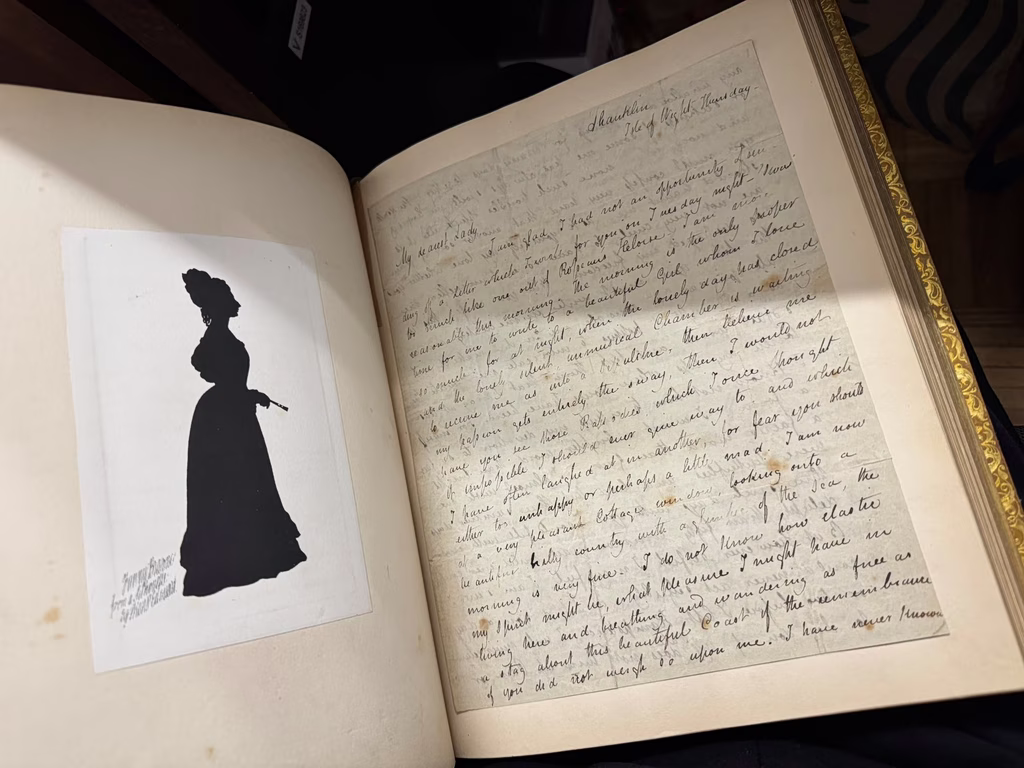 Fanny Brawne:
from a silhouette
by Edouart
Shanklin
Isle of Wight Thursday-
My dearest Lady,
I am glad I had not an opportunity
ding off a Letter which I wrote for you on Tuesday night-'twas
too much like one out of Rousseau's Heloise. I am more
reasonable this morning. The morning is the only proper
time for me to write to a beautiful Girl whom I love
so much: for at night, when the lonely day has closed
and the lonely silent unmusical Chamber is waiting
to receive me as into a Sepulchre, then believe me
my passion gets entirely the sway, then I would not
have you see those Rapsodies which I once thought
it impossible I should ever give way to and which
I have often laughed at in another, for fear you should
either too unhappy or perhaps a little mad. I am now
at a very pleasant Cottage window, looking onto a
beautiful hilly country with a glimpse of the sea, the
morning is very fine. I do not know how elastic
my spirit might be, what pleasure I might have in
living here and breathing and wandering as free as
a stag about this beautiful Coast if the remembrance
of you did not weigh so upon me. I have never known